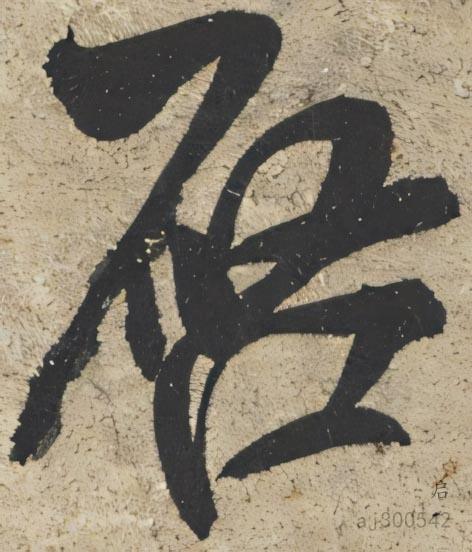 启
启
aj300542